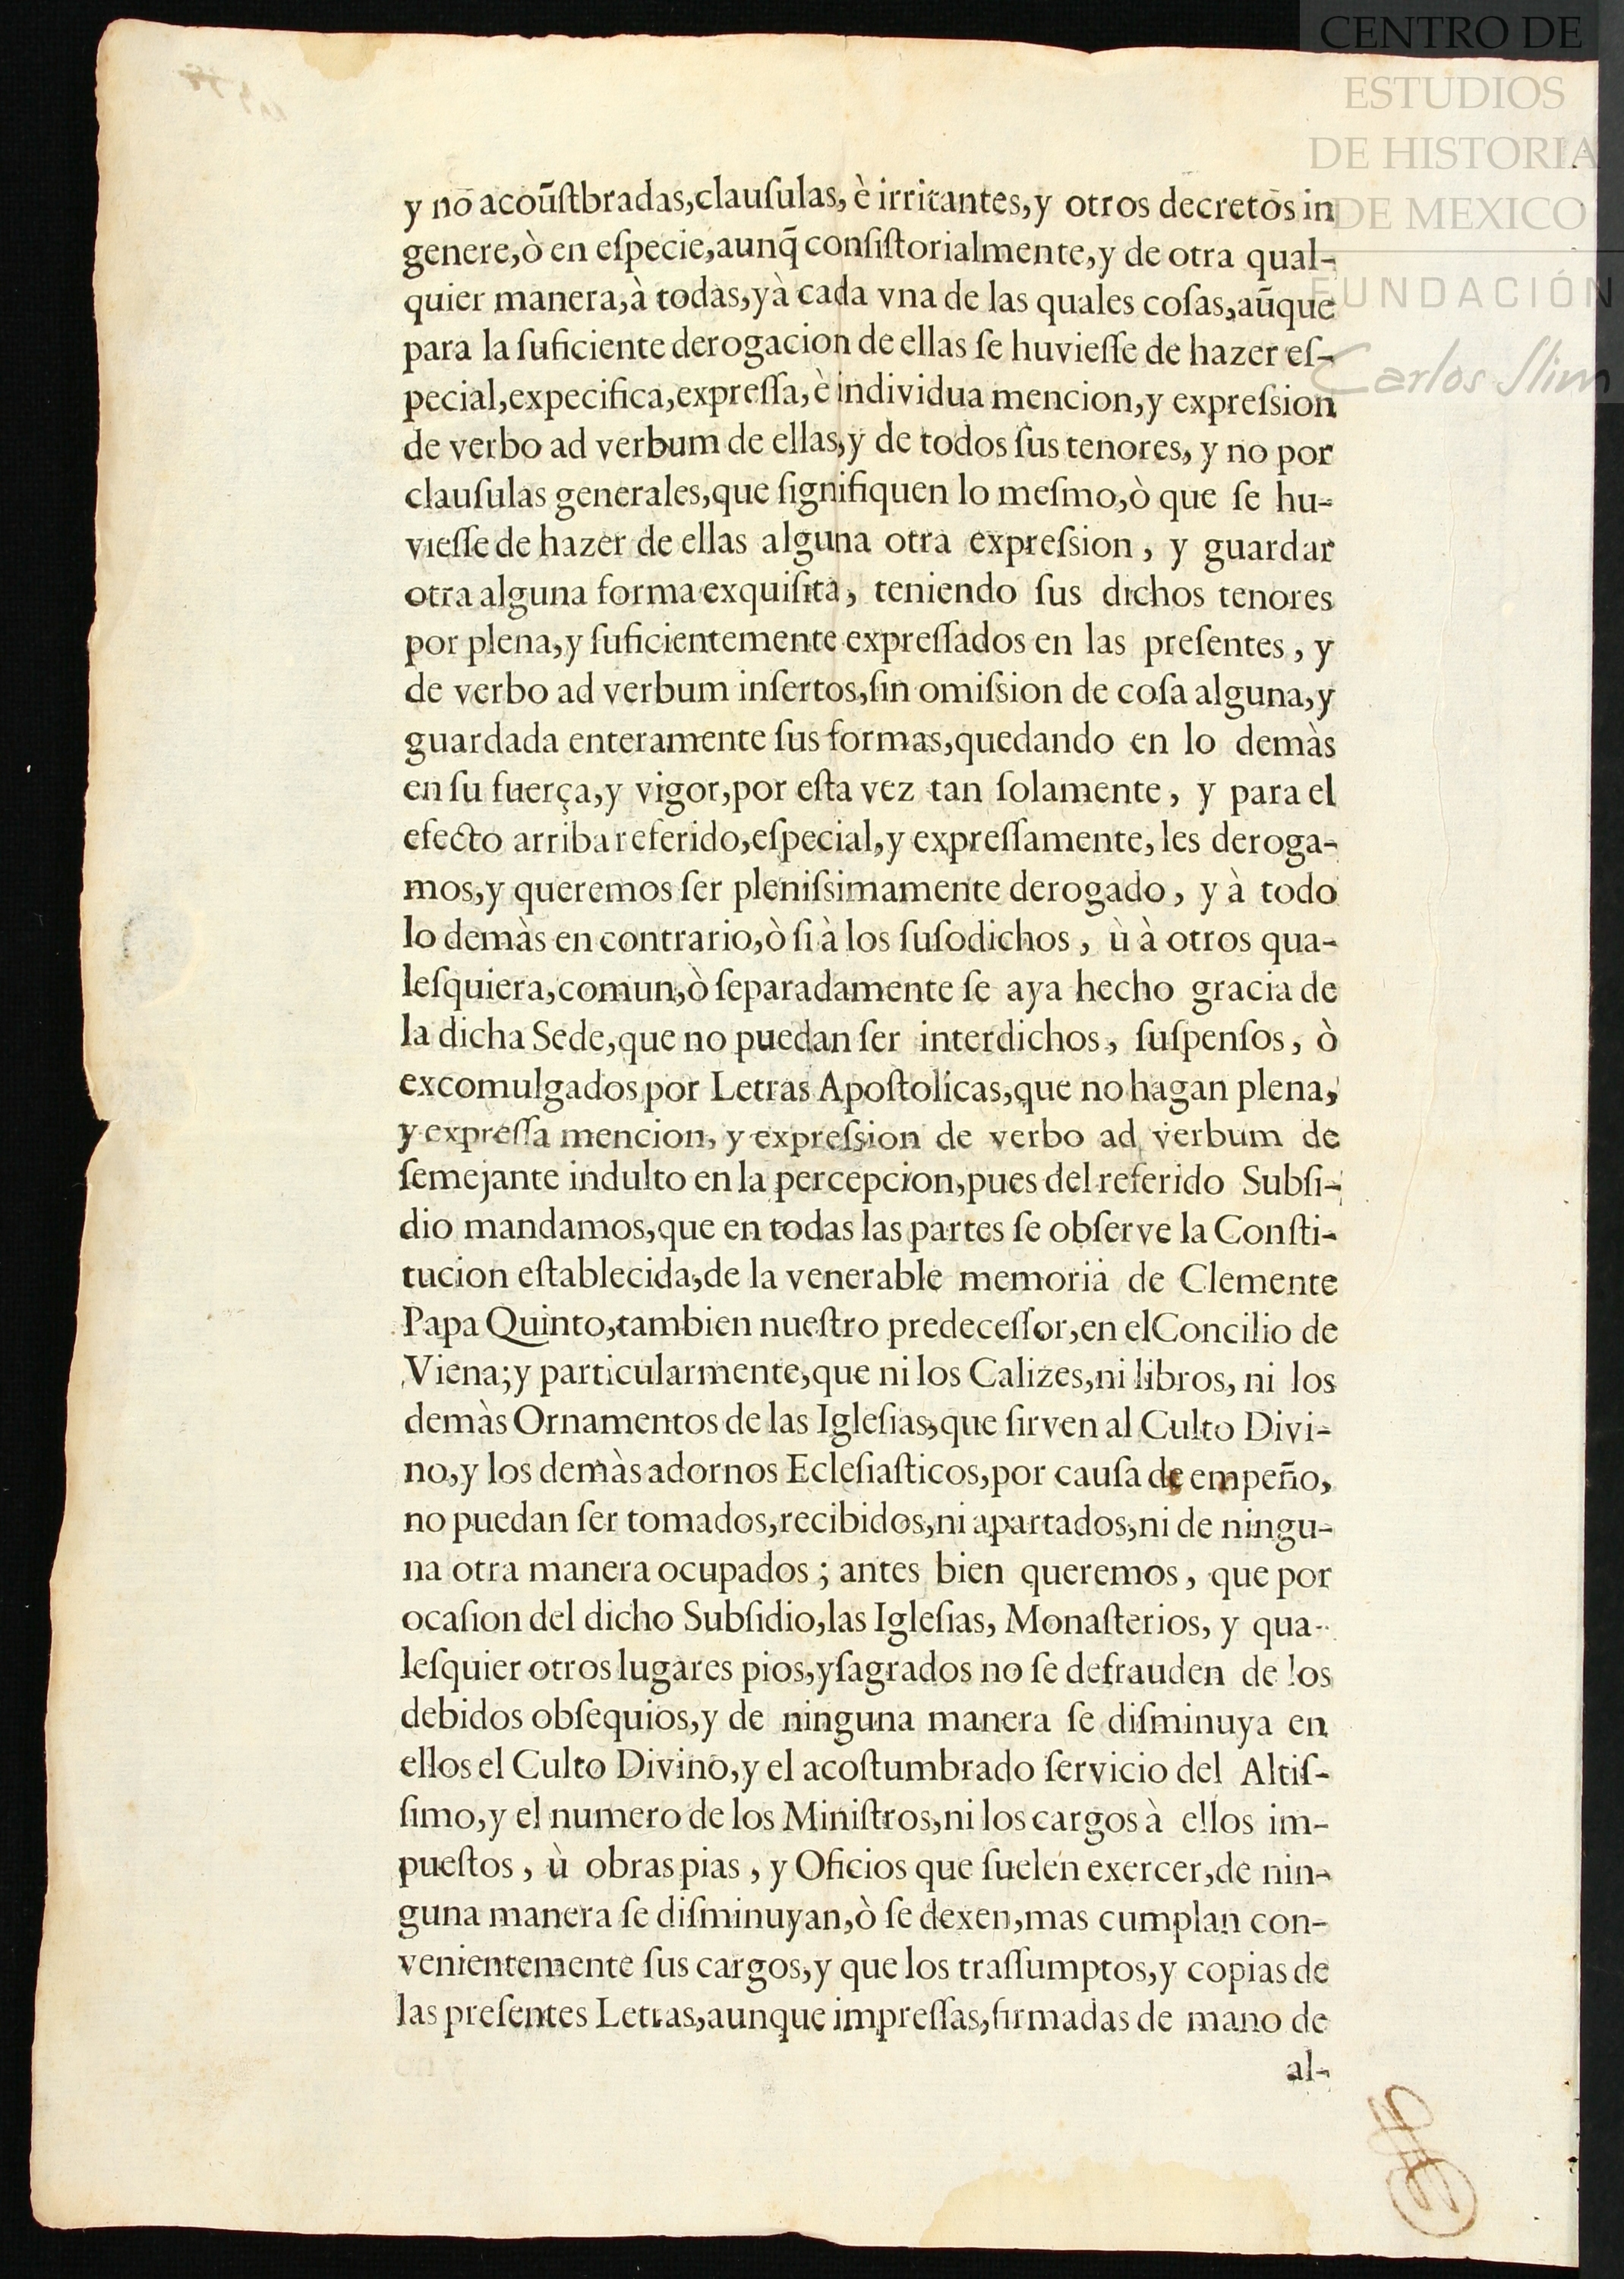 CENTRO DE
ESTUDIOS
DE HISTORIA
DE MEXICO
FUNDACIÓN
Carlos Slim
y no acoũſtbradas,clauſulas, è irritantes,y otros decretos in
genere,ò en eſpecie,aunq̃ conſiſtorialmente,y de otra qual-
quier manera,à todas,yà cada vna de las quales coſas,aũque
para la ſuficiente derogacion de ellas ſe huvieſſe de hazer eſ-
pecial,expecifica,expreſſa,è individua mencion,y expreſsion
de verbo ad verbum de ellas,y de todos ſus tenores, y no por
clauſulas generales,que ſignifiquen lo meſmo,ò que ſe hu-
vieſſe de hazer de ellas alguna otra expreſsion, y guardar
otra alguna forma exquiſita, teniendo ſus dichos tenores
por plena,y ſuficientemente expreſſados en las preſentes, y
de verbo ad verbum inſertos,ſin omiſsion de coſa alguna,y
guardada enteramente ſus formas,quedando en lo demàs
en ſu fuerça,y vigor,por eſta vez tan ſolamente, y para el
efecto arriba referido,eſpecial,y expreſſamente, les deroga-
mos,y queremos ſer pleniſsimamente derogado, y à todo
lo demàs en contrario,ò ſi à los ſuſodichos, ù à otros qua-
leſquiera,comun,ò ſeparadamente ſe aya hecho gracia de
la dicha Sede,que no puedan ſer interdichos, ſuſpenſos, ò
excomulgados por Letras Apoſtolicas,que no hagan plena,
y expreſſa mencion, y expreſsion de verbo ad verbum de
ſemejante indulto en la percepcion,pues del referido Subſi-
dio mandamos,que en todas las partes ſe obſerve la Conſti-
tucion eſtablecida,de la venerable memoria de Clemente
Papa Quinto,tambien nueſtro predeceſſor,en el Concilio de
Viena;y particularmente,que ni los Calizes,ni libros, ni los
demàs Ornamentos de las Igleſias,que ſirven al Culto Divi-
no,y los demàs adornos Ecleſiaſticos,por cauſa de empeño,
no puedan ſer tomados,recibidos,ni apartados,ni de ningu-
na otra manera ocupados; antes bien queremos, que por
ocaſion del dicho Subſidio,las Igleſias, Monaſterios, y qua-
leſquier otros lugares pios,yſagrados no ſe defrauden de los
debidos obſequios,y de ninguna manera ſe diſminuya en
ellos el Culto Divino,y el acoſtumbrado ſervicio del Altiſ-
ſimo,y el numero de los Miniſtros,ni los cargos à ellos im-
pueſtos, ù obras pias, y Oficios que ſuelen exercer,de nin-
guna manera ſe diſminuyan,ò ſe dexen,mas cumplan con-
venientemente ſus cargos,y que los traſſumptos,y copias de
las preſentes Letras,aunque impreſſas,firmadas de mano de
al-